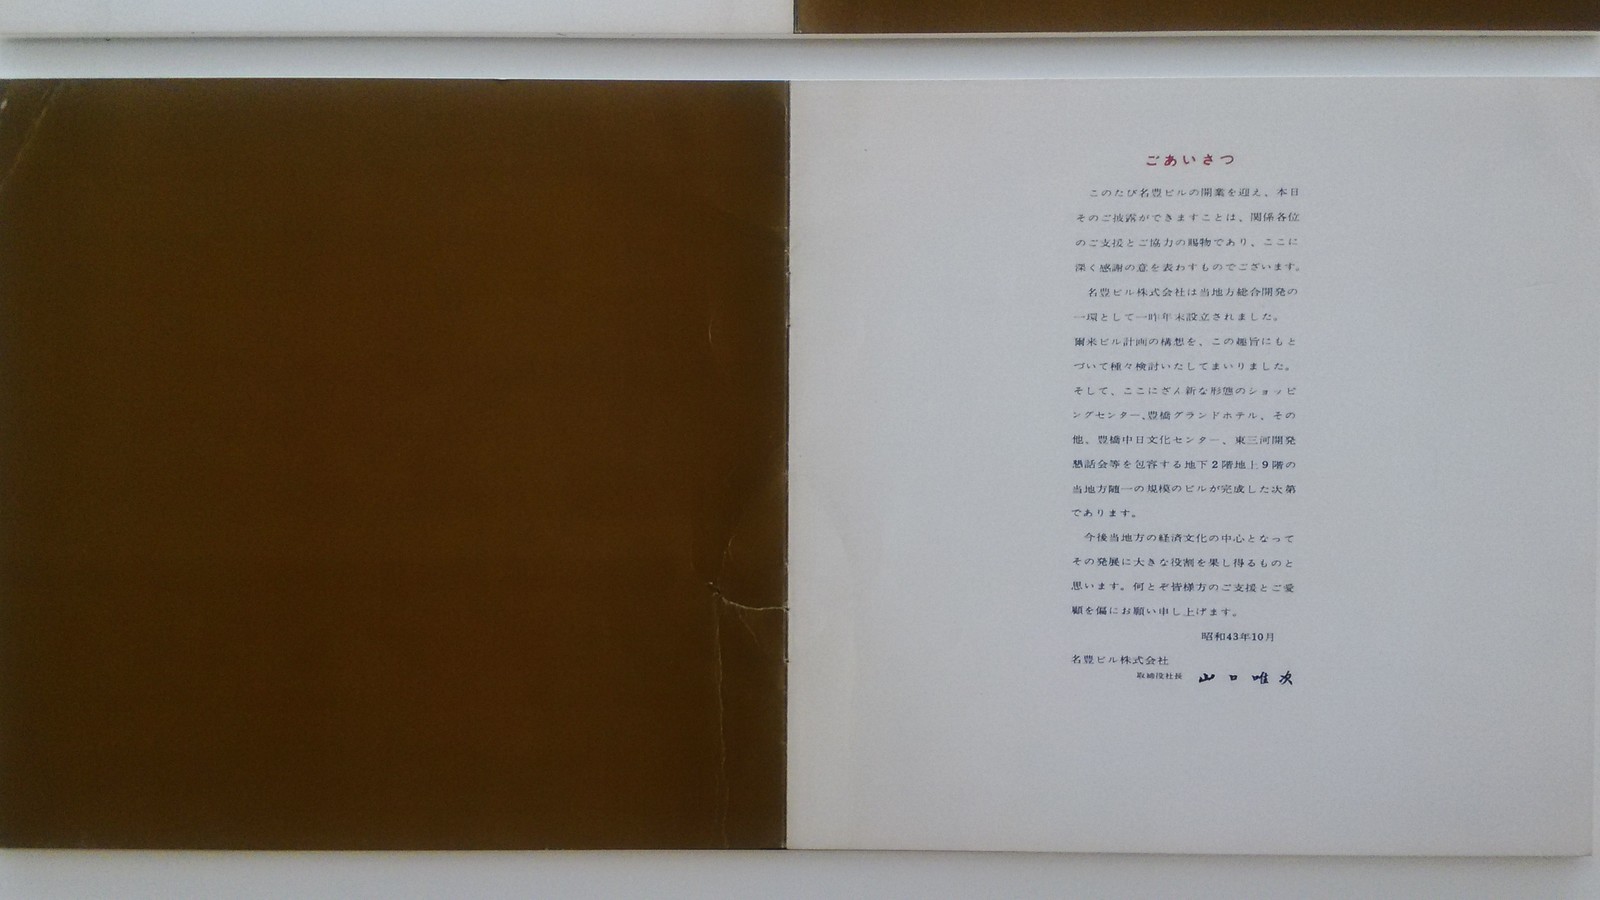 ごあいさつ
このたび名豊ビルの開業を迎え、本日
そのご披露ができますことは、関係各位
のご支援とご協力の賜物であり、ここに
深く感謝の意を表わすものでございます。
名豊ビル株式会社は当地方総合開発の
一環として一昨年末設立されました。
爾来ビル計画の構想を、この趣旨にもと
づいて種々検討いたしてまいりました。
そして、ここにざん新な形態のショッピ
ングセンター、豊橋グランドホテル、その
他、豊橋中日文化センター、東三河開発
懇話会等を包容する地下2階地上9階の
当地方随一の規模のビルが完成した次第
であります。
今後当地方の経済文化の中心となって
その発展に大きな役割を果し得るものと
思います。何とぞ皆様方のご支援とご愛
顧を偏にお願い申し上げます。
昭和43年10月
名豊ビル株式会社
取締役社長 山口唯次